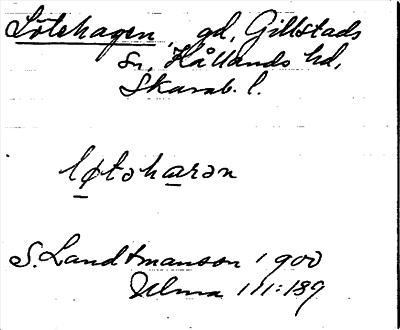 Lötehagen, gd, Gillstads
sn, Kållands hd,
Skarab. l.
løtəharən
S. Landtmanson 1900
Ulma 111:189